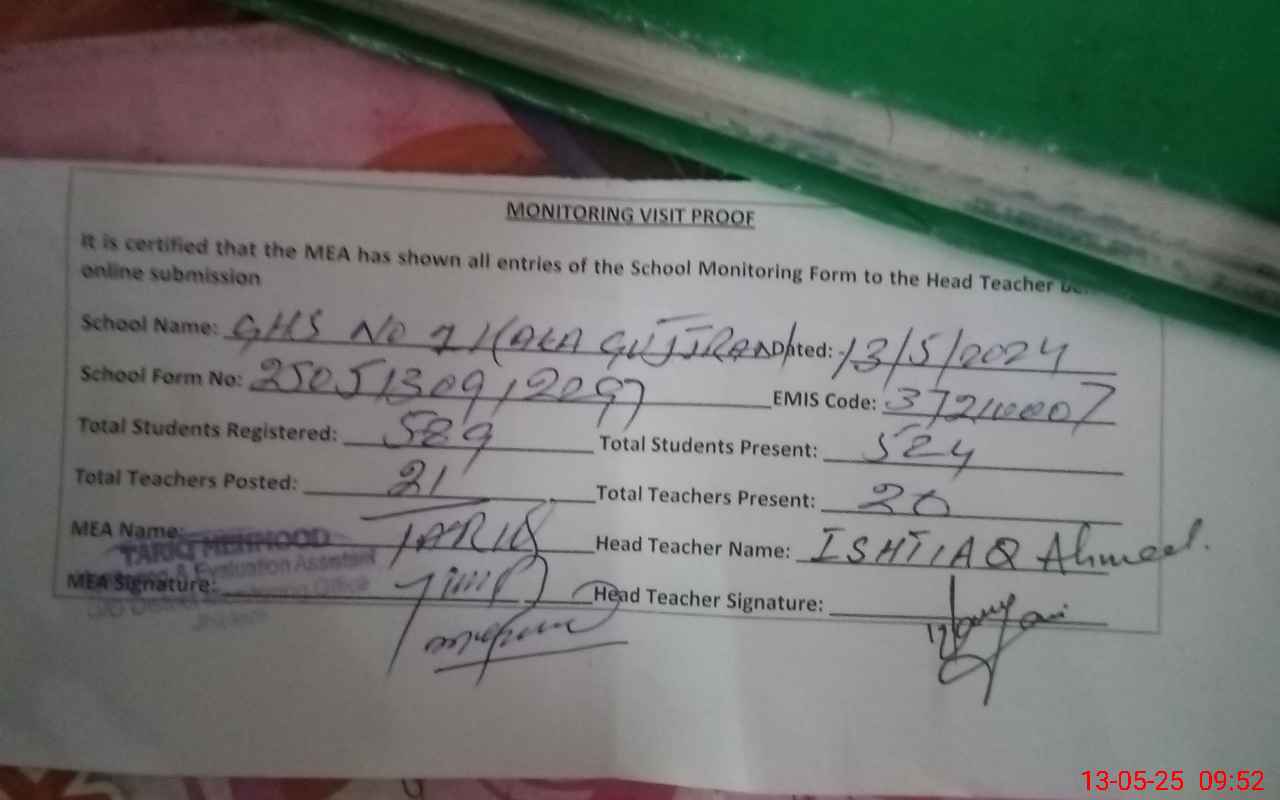 MONITORING VISIT PROOF
It is certified that the MEA has shown all entries of the School Monitoring Form to the Head Teacher
online submission
School Name: GHS NO 1 KALA GUJJRAN Dated: 13/5/2024
School Form No: EMIS Code: 37210007
Total Students Registered: 589 Total Students Present: 524
Total Teachers Posted: 21 Total Teachers Present: 20
MEA Name: TARIQ Head Teacher Name: ISHTIAQ Ahmed.
TARIQ MEHMOOD
& Evaluation Assistant
MEA Signature: Head Teacher Signature:
Office
13-05-25 09:52